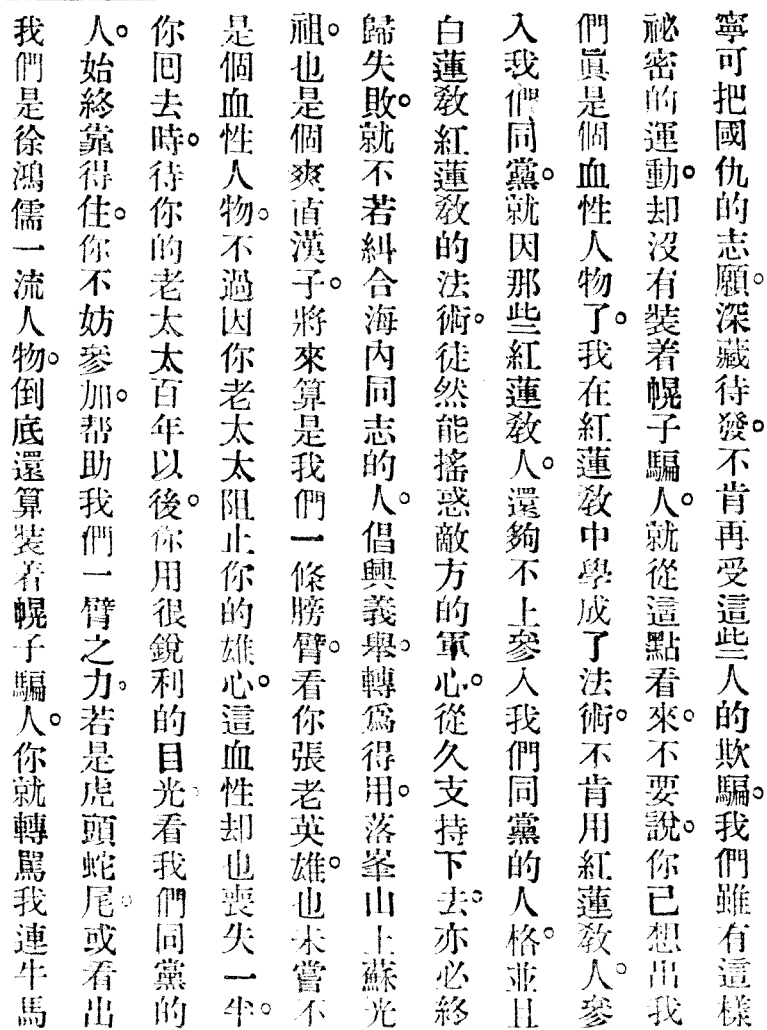 寧可把國仇的志願。深藏待發。不肯再受這些人的欺騙。我們雖有這樣
祕密的運動。却沒有裝着幌子騙人。就從這點看來。不要說。你已想出我
們眞是個血性人物了。我在紅蓮敎中學成了法術。不肯用紅蓮敎人。參
入我們同黨。就因那些紅蓮敎人。還夠不上參入我們同黨的人格。並且
白蓮敎紅蓮敎的法術。徒然能搖惑敵方的軍心。從久支持下去。亦必終
歸失敗。就不若糾合海內同志的人。倡興義舉。轉爲得用。落峯山上蘇光
祖。也是個爽直漢子。將來算是我們一條膀臂。看你張老英雄。也未嘗不
是個血性人物。不過因你老太太阻止你的雄心。這血性却也喪失一半。
你回去時。待你的老太太百年以後。你用很銳利的目光。看我們同黨的
人。始終靠得住。你不妨參加。帮助我們一臂之力。若是虎頭蛇尾。或看出
我們是徐鴻儒一流人物。倒底還算裝着幌子騙人。你就轉駡我連牛馬